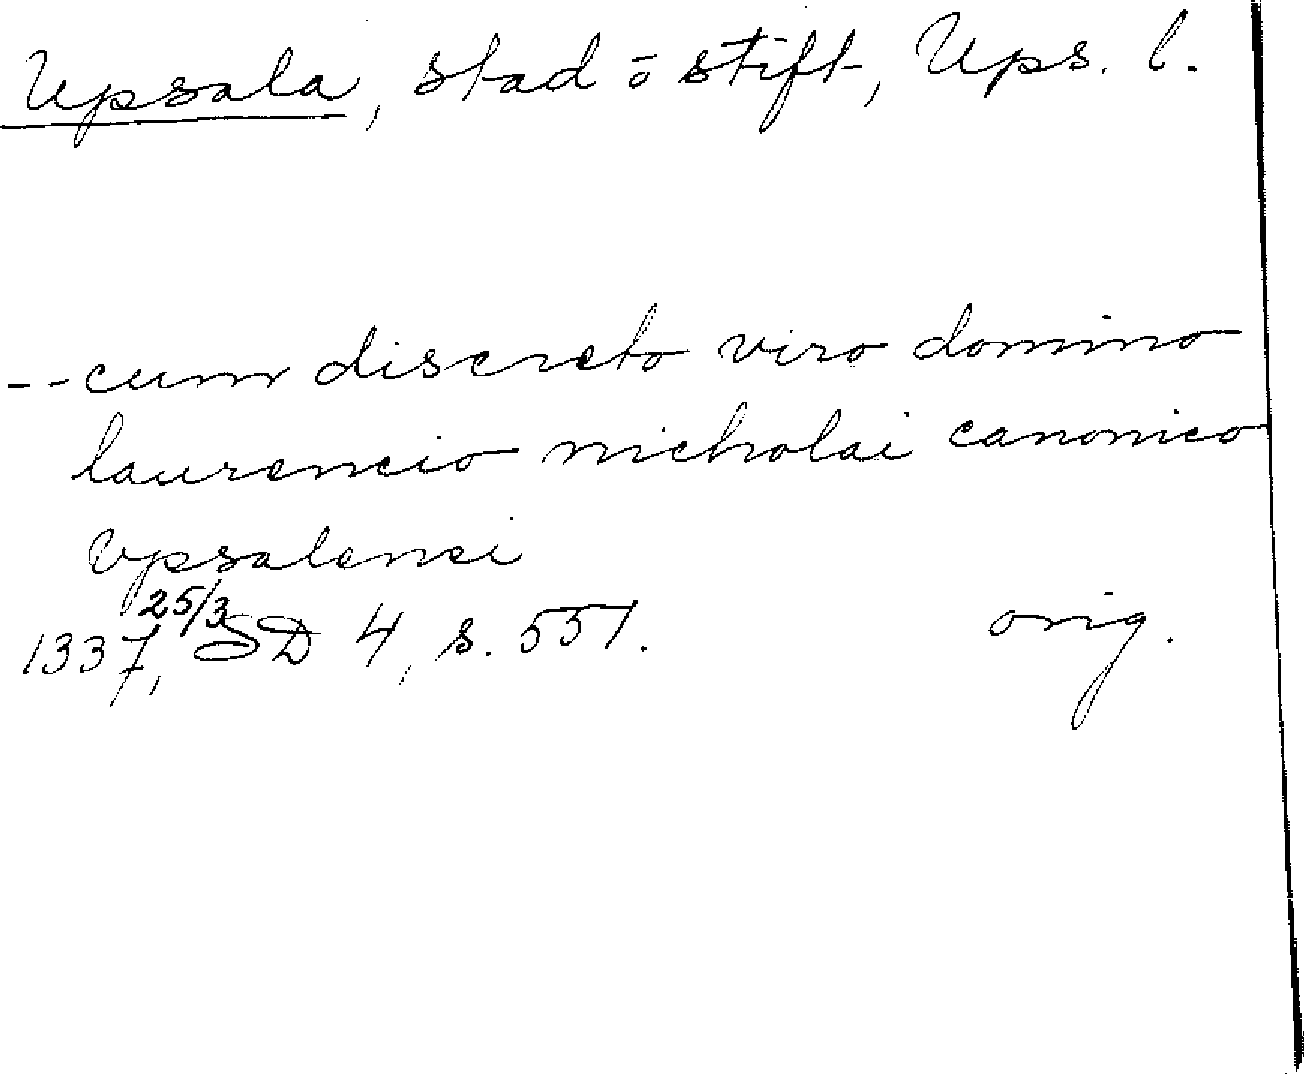 Upsala, stad o stift, Ups. l.
--cum discreto viro domino
laurencio nicholai canonico
vpsalensi
1337, 25/3 SD 4, s. 551. orig.